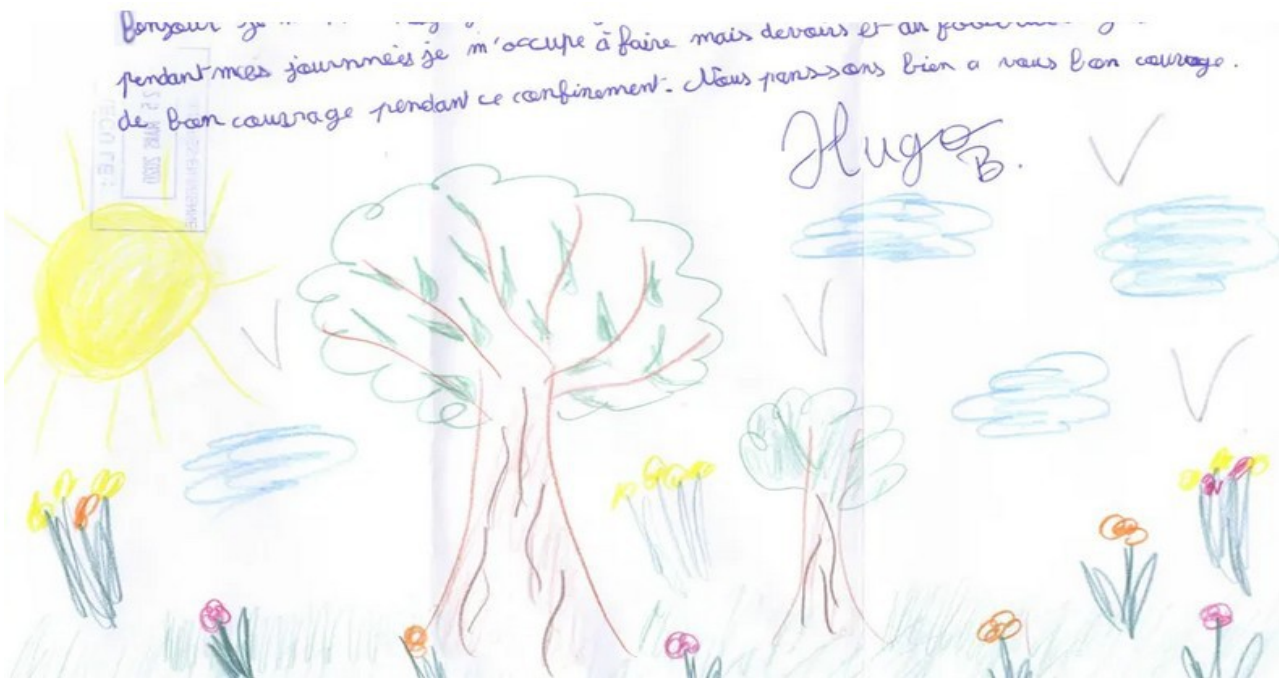 Bonjour je
pendant mes journnées je m'occupe à faire mais devoirs et
de bon courrage pendant ce confinement. Nous penssons bien a vous bon courage.
Hugo
B.
25 MARS 2020
REÇU LE :